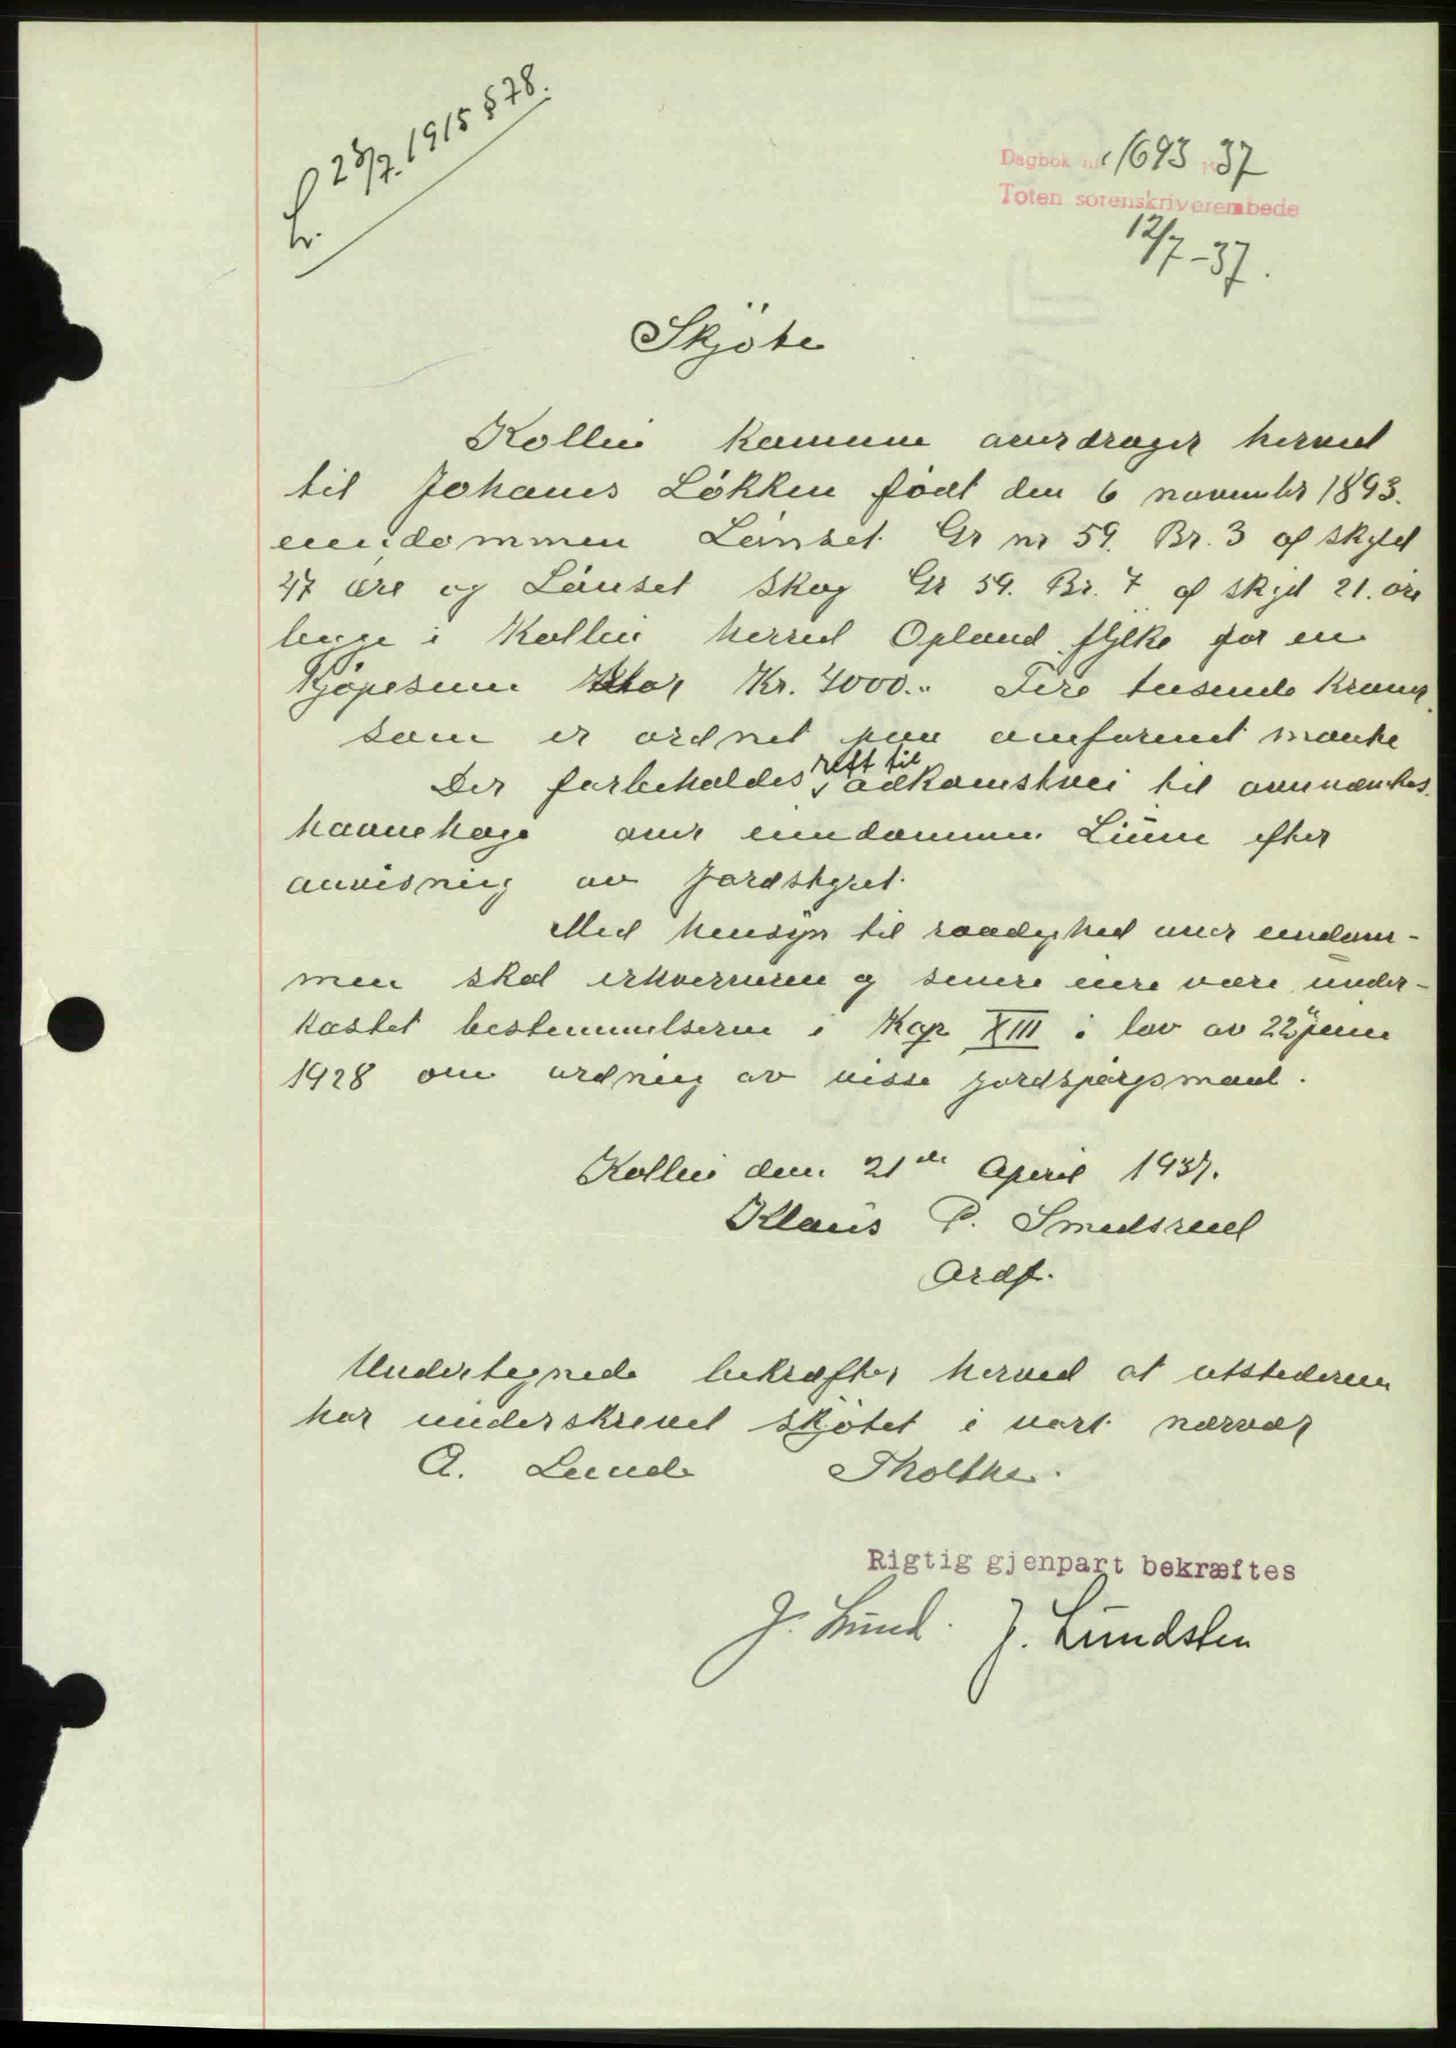 L. 23/7. 1915 § 78.
Dagbok nr. 1693 1937
Toten sorenskriverembede
12/7 - 37.
Skjöte
Kolbu komune averdrager herved
til Johanes Lökken födt den 6 november 1893.
eiendommen Lönset Gr nr 59. Br. 3 af skyld
47 øre og Lönset Skog Gr 59. Br. 7 af skyld 21. øre
begge i Kolbu herred Opland fylke for en
Kjöpesum stor Kr. 4000.- Fire tusende kroner.
som er ordnet paa omforenet maate
Der forbeholdes rett til adkomstvei til
havnehage over eiendommen Linne efter
anvisning av Jordstyret.
Med hensyn til raadighed over eiendom-
men skal erhververen og senere eiere være under-
kastet bestemmelserne i Kap XIII i lov av 22 juni
1928 om ordning av visse jordspörgsmaal.
Kolbu den 21de April 1937.
Klaus P. Smedsrud
Ordf.
Undertegnede bekræfter herved at utstederen
har underskrevet skjötet i vort nærvær
A. Lunde
Rigtig gjenpart bekræftes
J. Lund. J. Lundsten